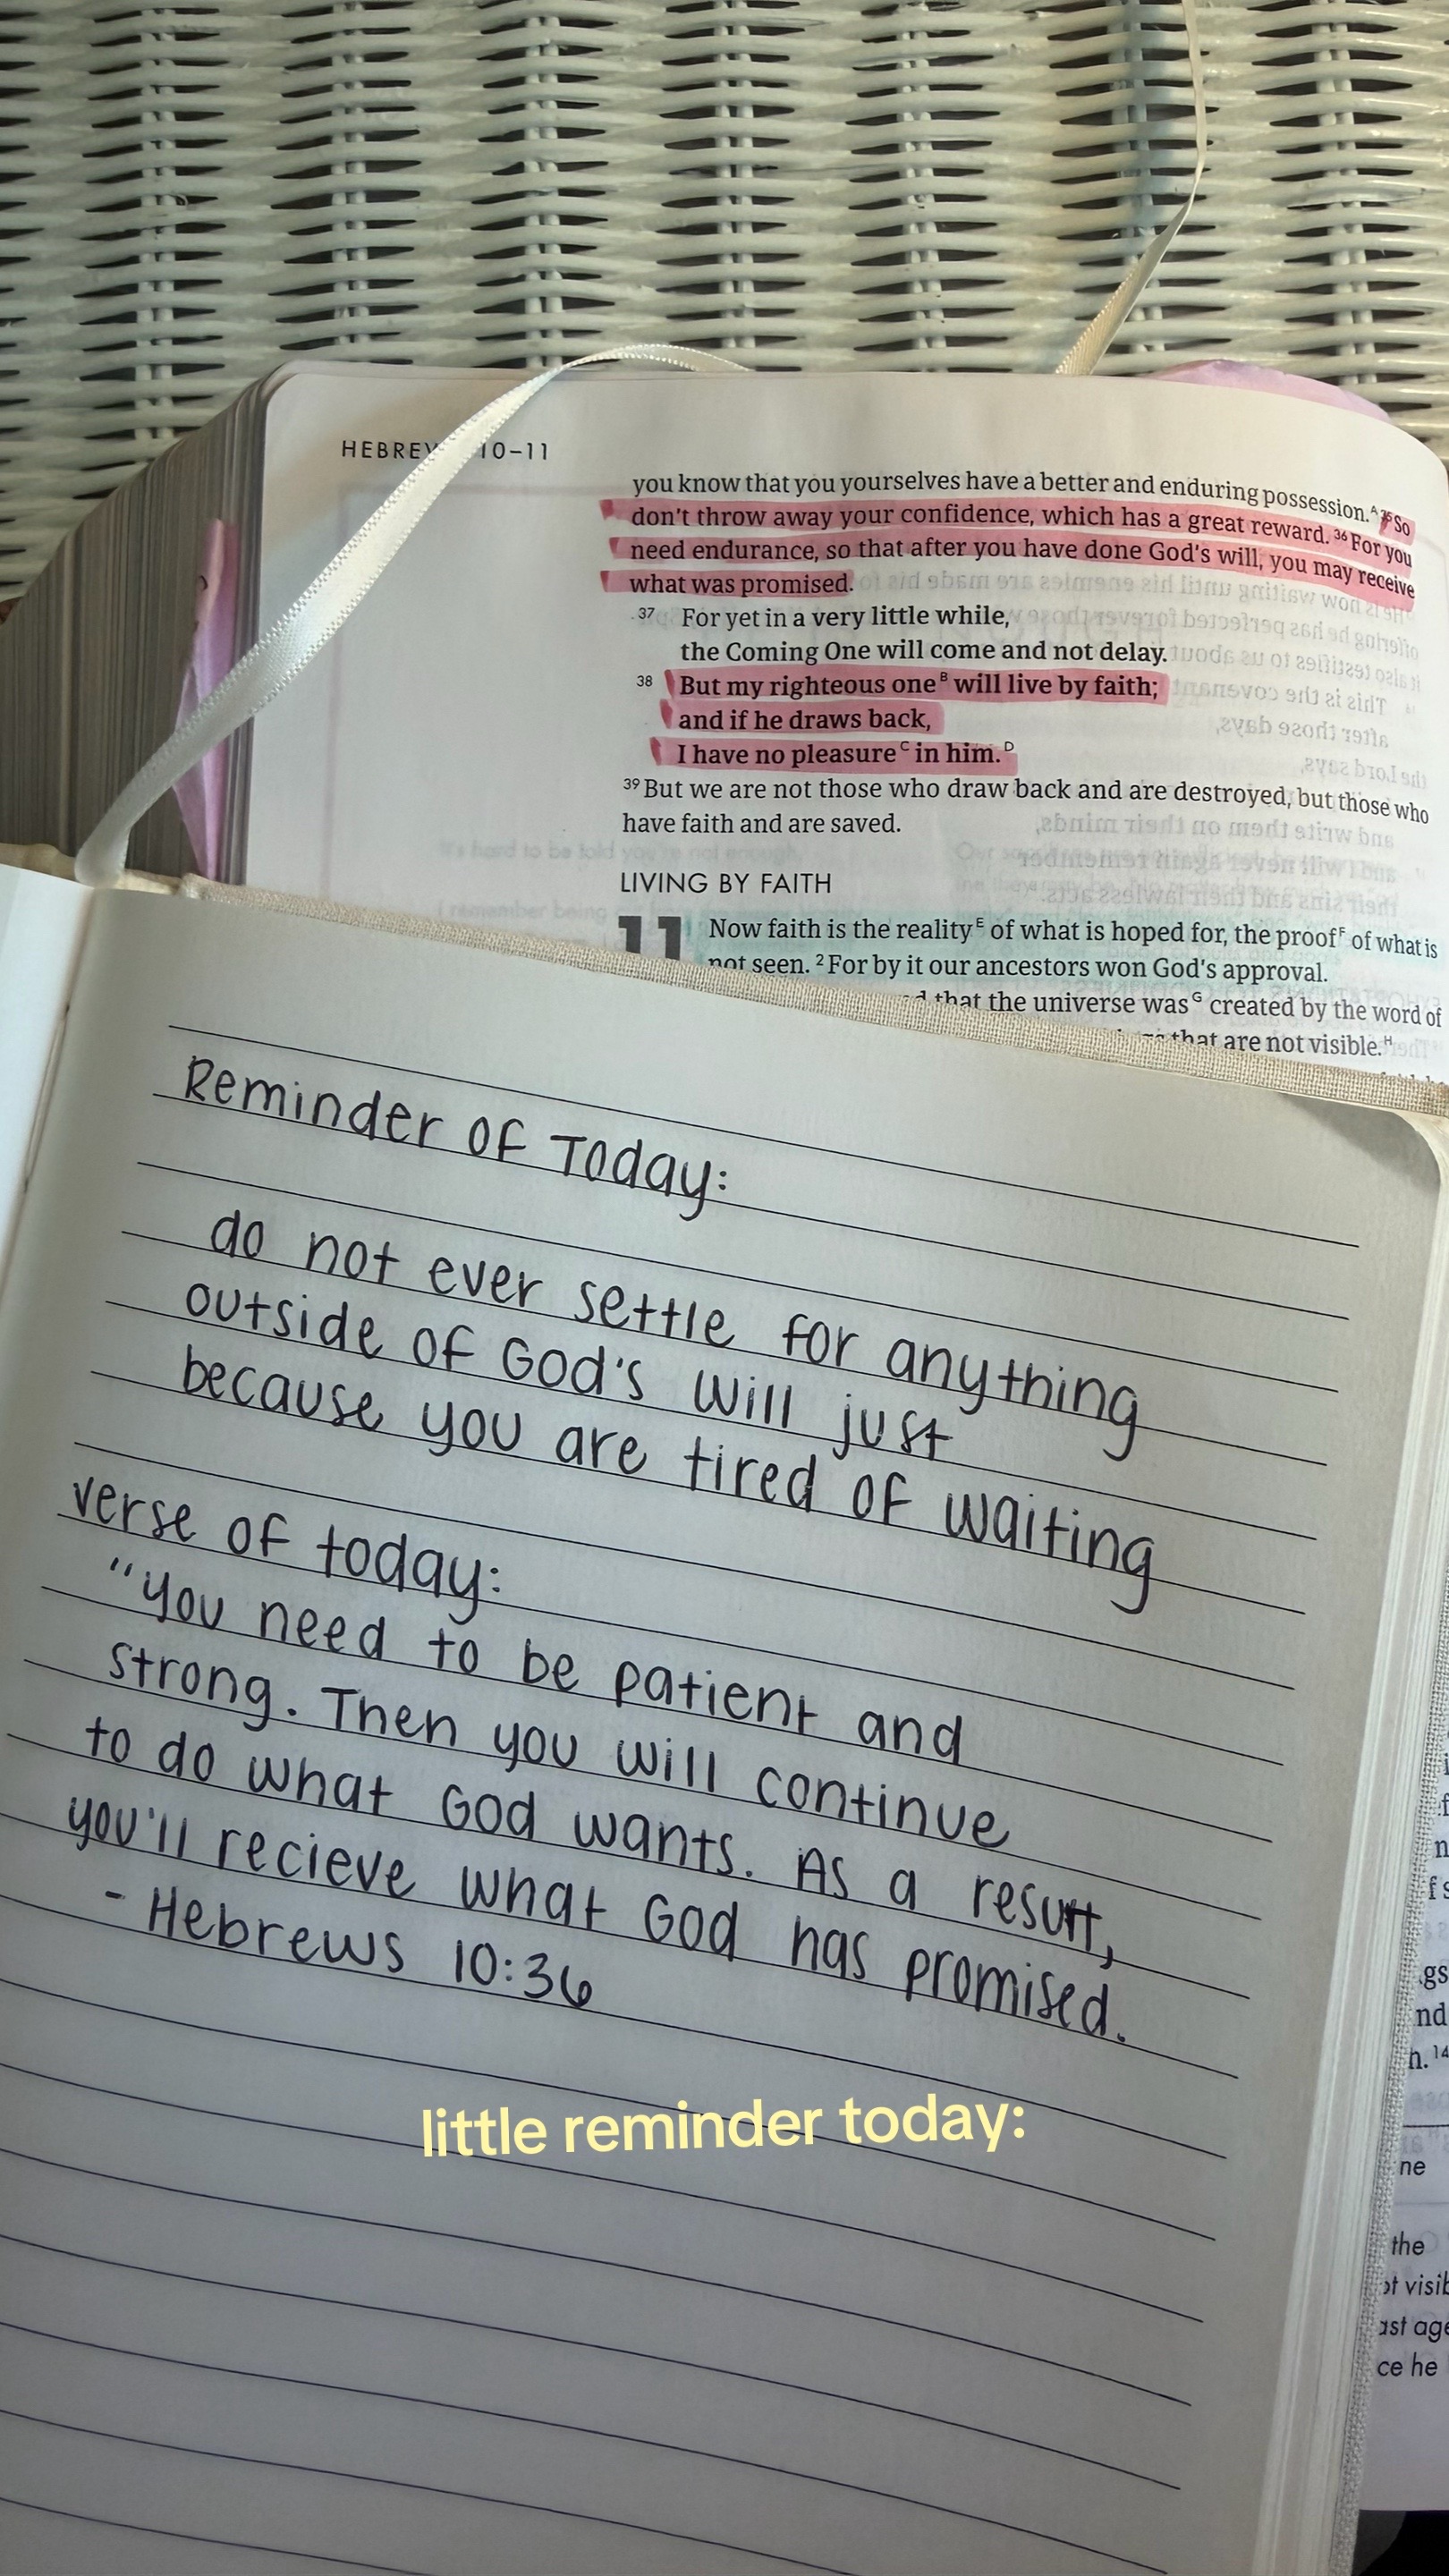 HEBREW 10–11
you know that you yourselves have a better and enduring possession.ᴬ ³⁵ So
don't throw away your confidence, which has a great reward. ³⁶ For you
need endurance, so that after you have done God's will, you may receive
what was promised.
³⁷ For yet in a very little while,
the Coming One will come and not delay.
³⁸ But my righteous oneᴮ will live by faith;
and if he draws back,
I have no pleasureᶜ in him.ᴰ
³⁹ But we are not those who draw back and are destroyed, but those who
have faith and are saved.
LIVING BY FAITH
11 Now faith is the realityᴱ of what is hoped for, the proofF of what is
not seen. ² For by it our ancestors won God's approval.
that the universe wasᴳ created by the word of
that are not visible.ᴴ
Reminder of Today:
do not ever settle for anything
outside of God's will just
because you are tired of waiting
verse of today:
"you need to be patient and
strong. Then you will continue
to do what God wants. As a result,
you'll recieve what God has promised.
- Hebrews 10:36
little reminder today:
gs
nd
h.¹⁴
ne
the
ot visib
ast age
ce he